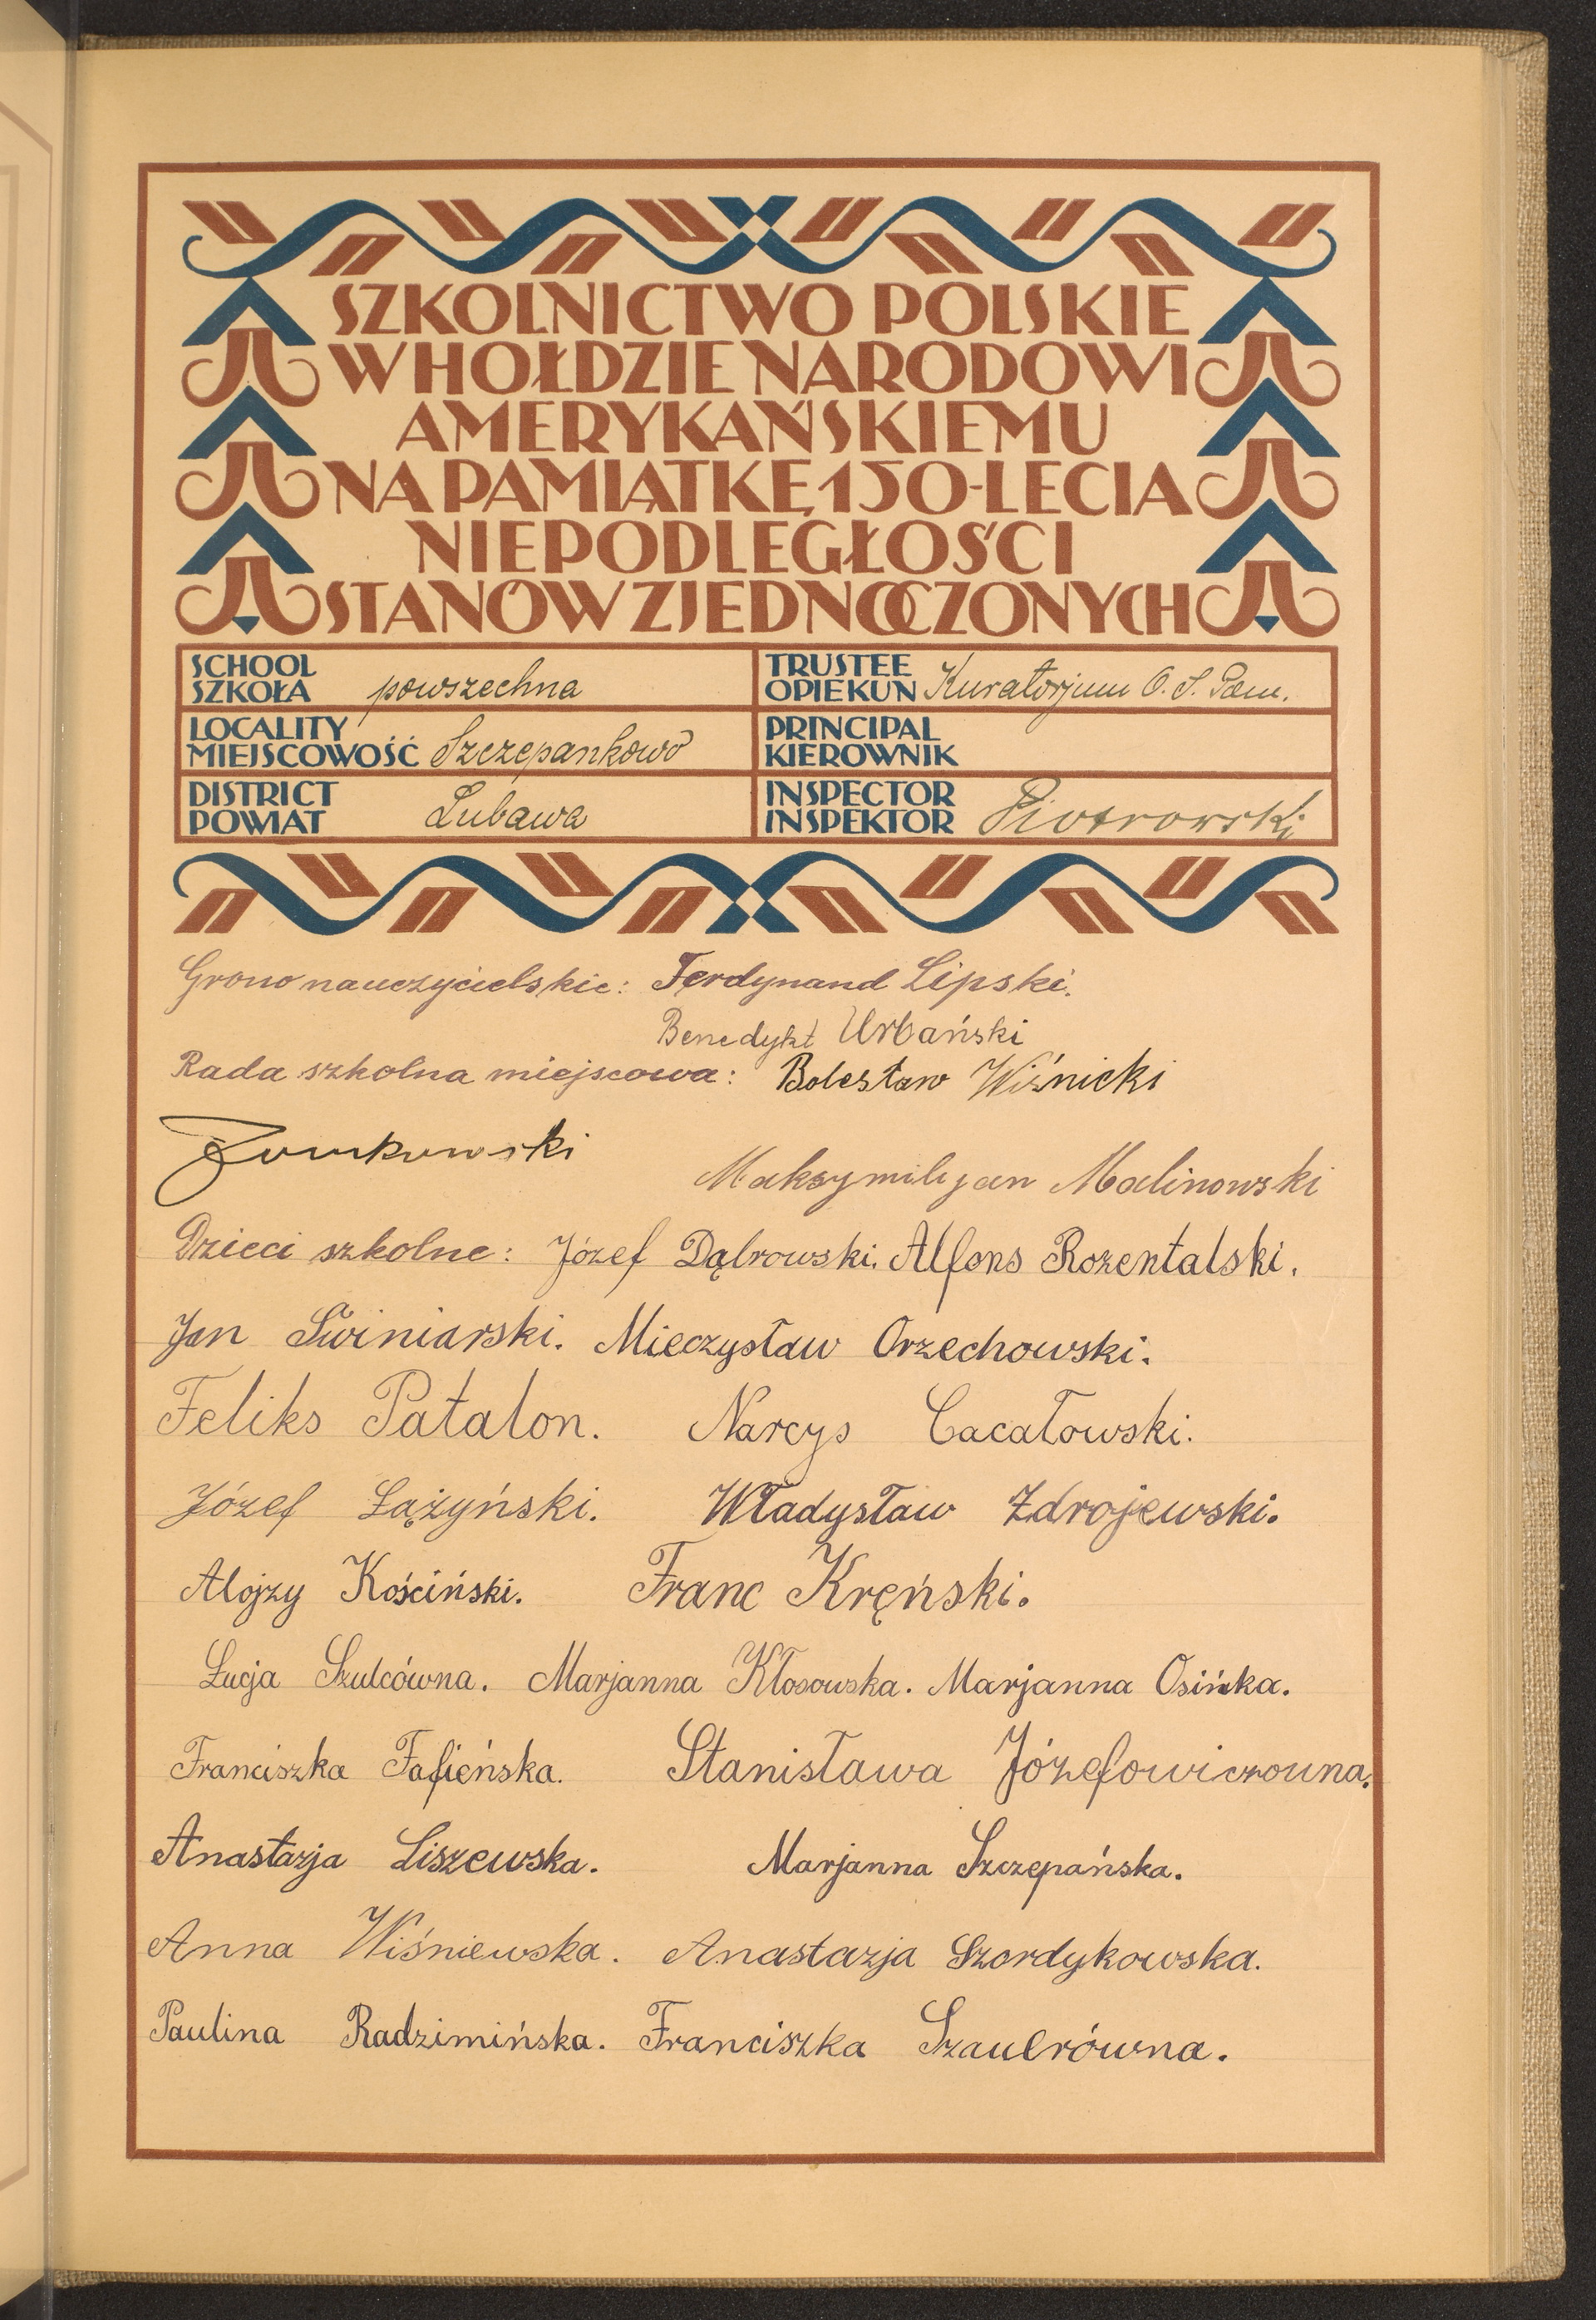 SZKOLNICTWO POLSKIE
W HOŁDZIE NARODOWI
AMERYKAŃSKIEMU
NA PAMIĄTKĘ 150-LECIA
NIEPODLEGŁOŚCI
STANÓW ZJEDNOCZONYCH
SCHOOL
SZKOŁA powszechna
TRUSTEE
OPIEKUN Kuratorjum O. S. Pom.
LOCALITY
MIEJSCOWOŚĆ Szczepankowo
PRINCIPAL
KIEROWNIK
DISTRICT
POWIAT Lubawa
INSPECTOR
INSPEKTOR Piotrowski
Grono nauczycielskie: Ferdynand Lipski.
Benedykt Urbański
Rada szkolna miejscowa: Bolesław Wiśnicki
Maksymilijan Malinowski
Dzieci szkolne: Józef Dąbrowski. Alfons Rozentalski.
Jan Świniarski. Mieczysław Orzechowski.
Feliks Patalon. Narcys Cacałowski.
Józef Łążyński. Władysław Zdrojewski.
Alojzy Kościński. Franc Kręński.
Łucja Szulcówna. Marjanna Kłosowska. Marjanna Osińka.
Franciszka Fafieńska. Stanisława Józefowiczowna.
Anastazja Liszewska. Marjanna Szczepańska.
Anna Wiśniewska. Anastazja Szordykowska.
Paulina Radzimińska. Franciszka Szaulrówna.